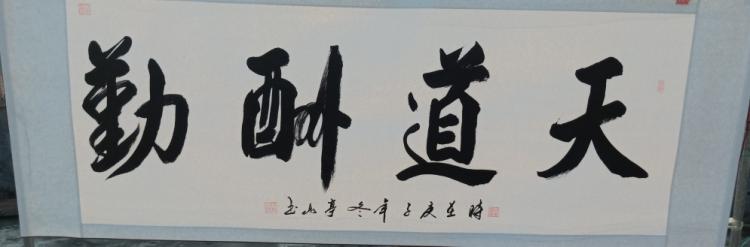 天道酬勤
時在庚子年冬亭山玉